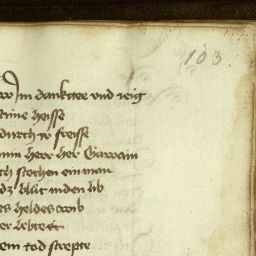 103.
im danckete vnd neig
stime heisse
durch ir freisse
min herr her Gawain
ch stechen ein man
dz blůt in den lib
es heldes wib
er lebte
em tod strepte